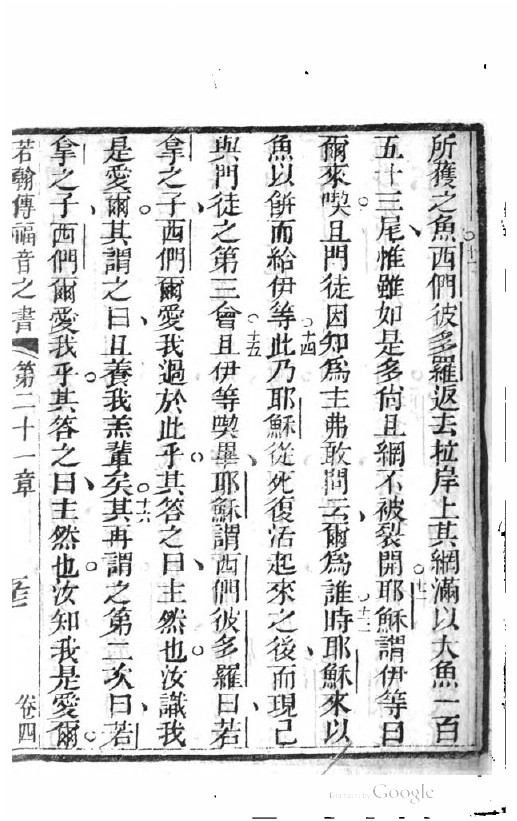 所獲之魚西們彼多羅返去拉岸上其網滿以大魚一百
五十三尾惟雖如是多尙且網不被裂開耶穌謂伊等曰
爾來喫且門徒因知爲主弗敢問云爾爲誰時耶穌來以
魚以餠而給伊等此乃耶穌從死復活起來之後而現己
與門徒之第三會且伊等喫畢耶穌謂西們彼多羅曰若
拿之子西們爾愛我過於此乎其答之曰主然也汝識我
是愛爾其謂之曰且養我羔輩矣其再謂之第二次曰若
拿之子西們爾愛我乎其答之曰主然也汝知我是愛爾
若翰傳福音之書 第二十一章 卷四
十一
十二
十三
十四
十五
十六
Digitized by Google